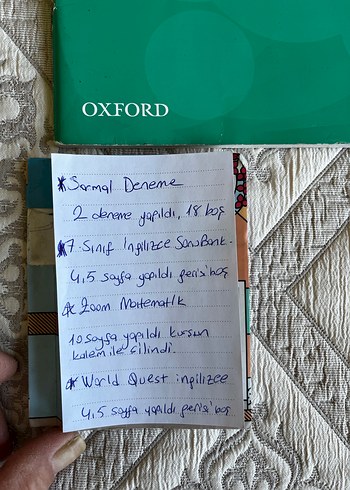 OXFORD
* Sarmal Deneme
2 deneme yapıldı, 18 boş
* 7. Sınıf İngilizce SoruBank.
4,5 sayfa yapıldı gerisi boş
* Zoom Matematik
10 sayfa yapıldı kurşun
kalem ile silindi.
* World Quest ingilizce
4,5 sayfa yapıldı gerisi boş